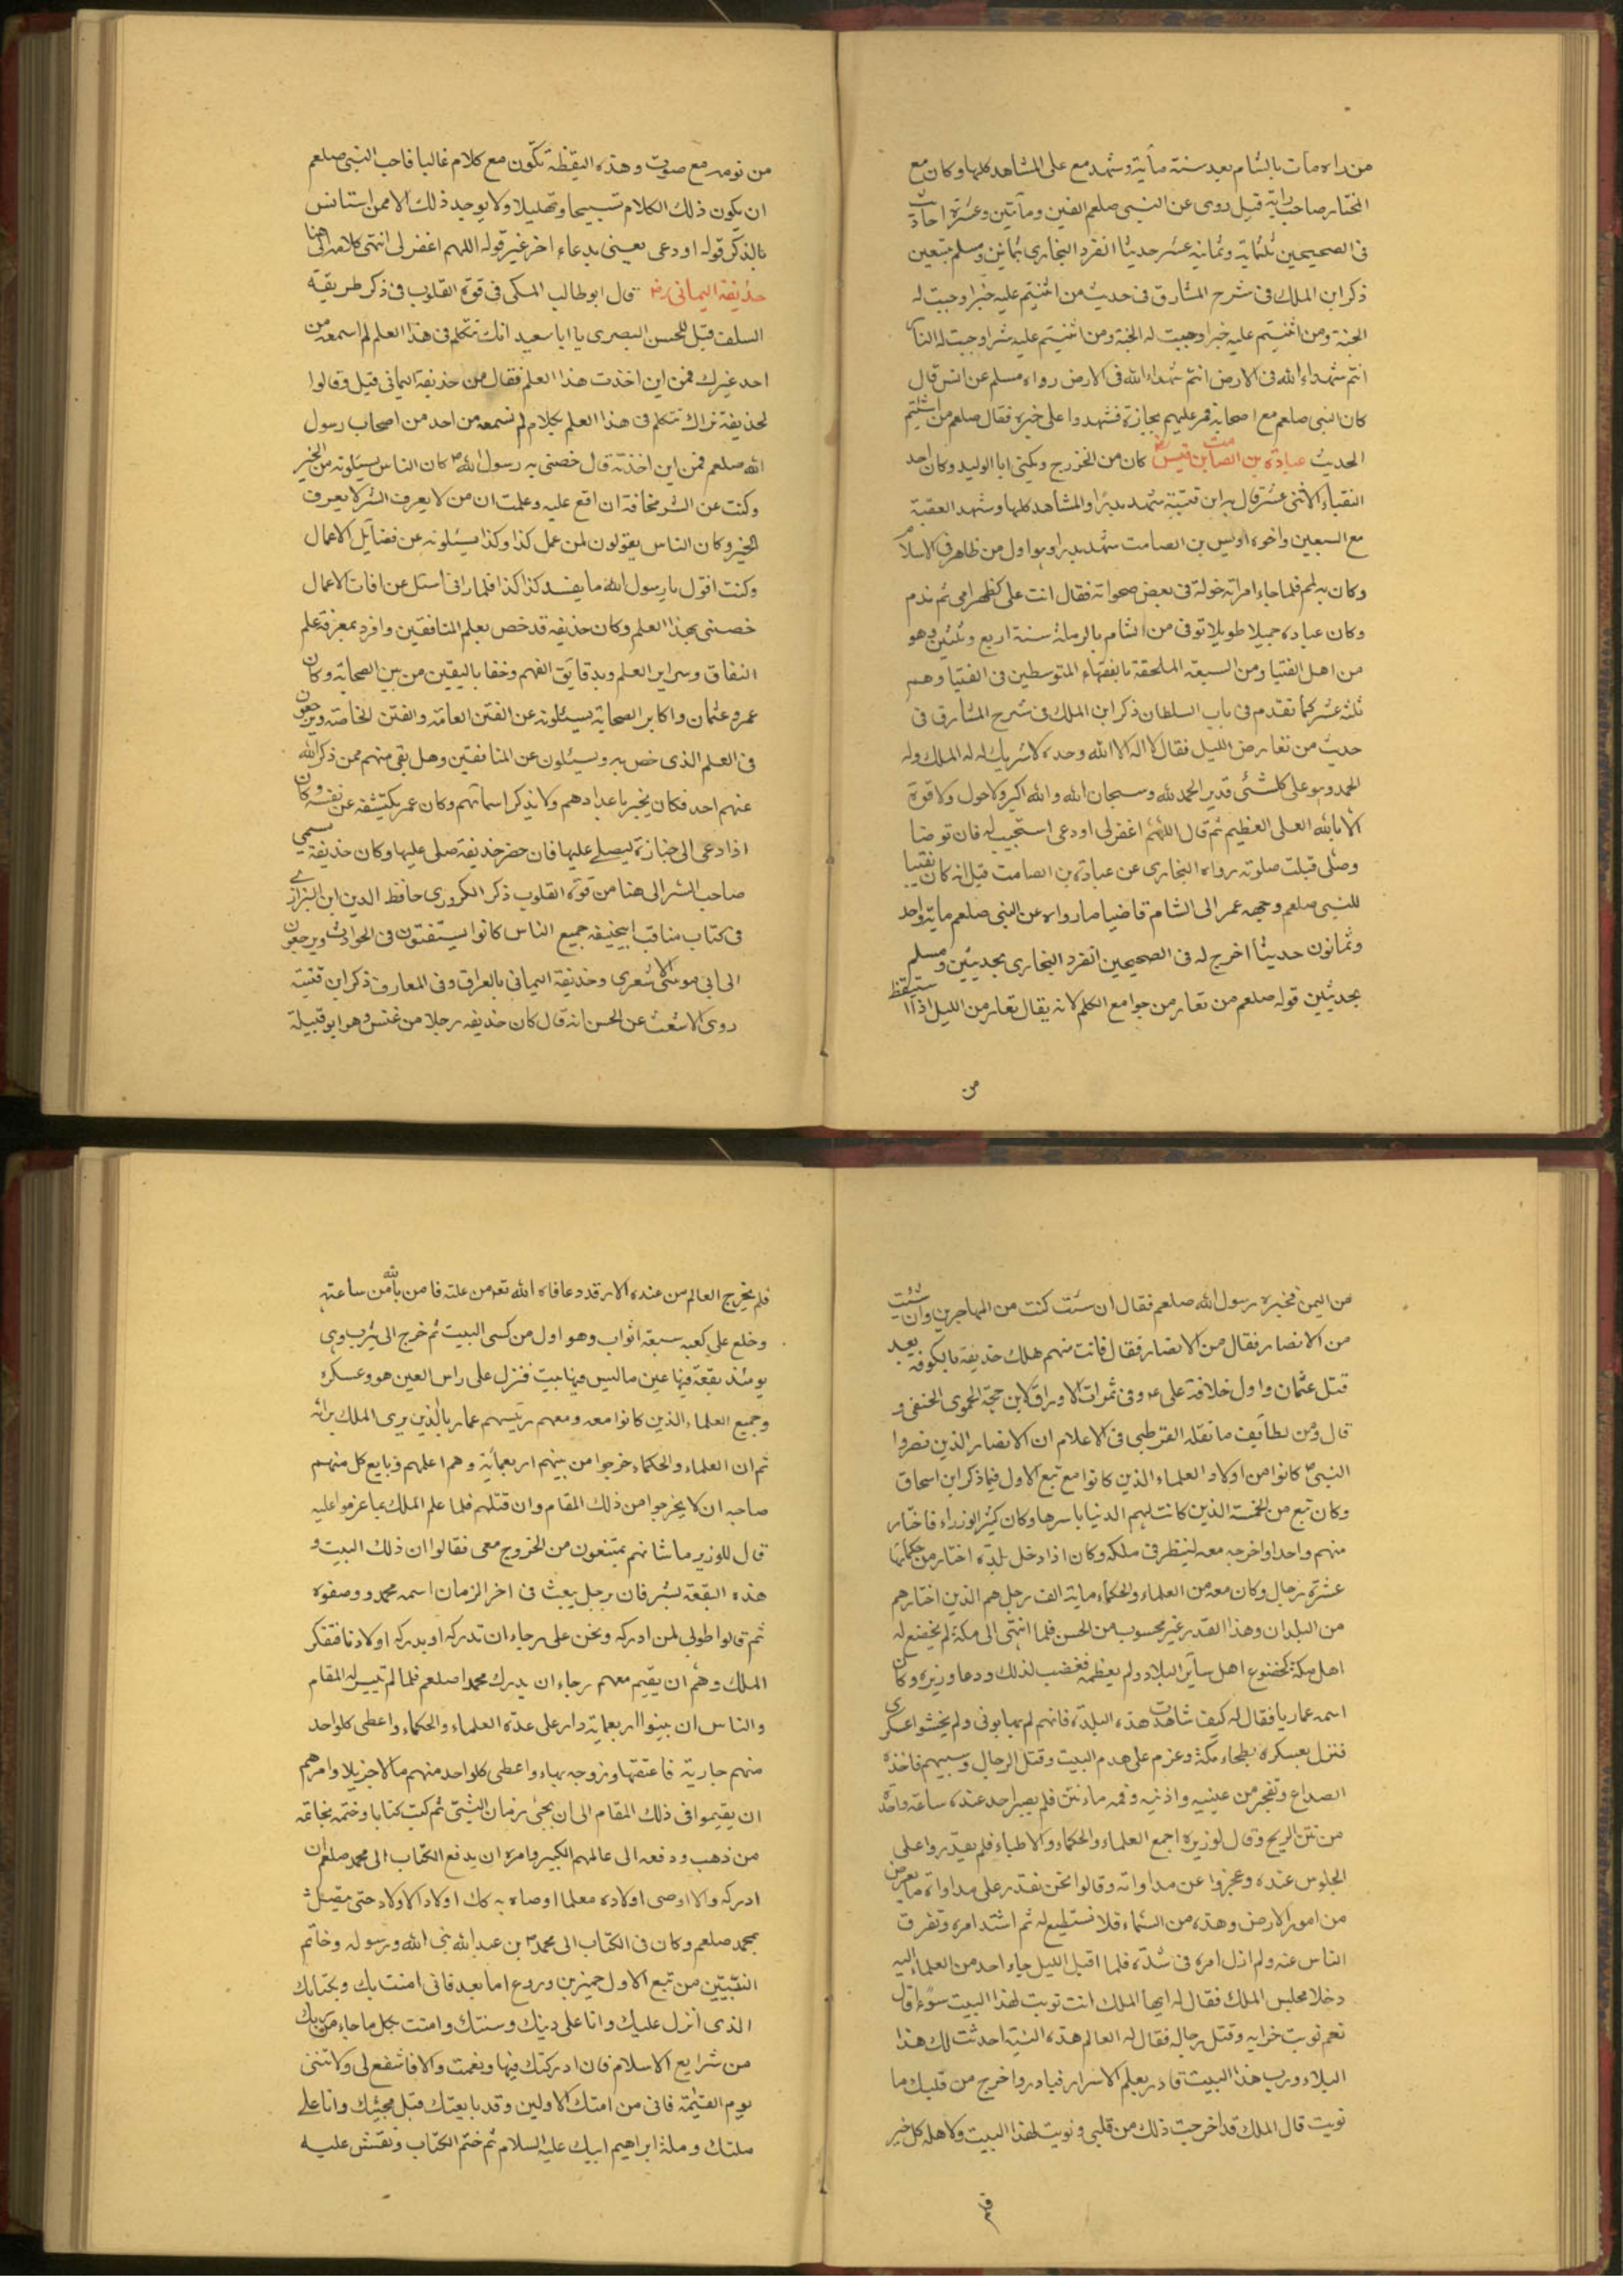 من راه مات بالشام بعد سنة مأية وشهد مع على المشاهد كلها وكان مع
المختار صاحب رايته قيل روى عن النبى صلعم الفين ومأتين وعشرة احاديث
فى الصحيحين ثلثماية وثمانية عشر حديثا انفرد البخارى بثمانين ومسلم بتسعين
ذكر ابن الملك فى شرح المشارق فى حديث من اثنيتم عليه خيرا وجبت له
الجنة ومن اثنيتم عليه خيرا وجبت له الجنة ومن اثنيتم عليه شرا وجبت له النار
انتم شهداء الله فى الارض انتم شهداء الله فى الارض رواه مسلم عن انس قال
كان النبى صلعم مع اصحابه فمر عليهم بجنازة فشهدوا على خيره فقال صلعم من اثنيتم
الحديث عبادة بن الصامت بن قيس رض كان من الخزرج ويكنى ابا الوليد وكان احد
النقباء الاثنى عشر قال به ابن قتيبة شهد بدرا والمشاهد كلها وشهد العقبة
مع السبعين واخوه اويس بن الصامت شهد بدرا وهو اول من ظاهر فى الاسلام
وكان به لمم فلما جاء امراته خولة فى بعض صحواته فقال انت على كظهر امى ثم ندم
وكان عباده جميلا طويلا توفى من الشام بالرملة سنة اربع وثلثين وهو
من اهل الفتيا ومن السبعة الملحقة بالفقهاء المتوسطين فى الفتيا وهم
ثلثة عشر كما تقدم فى باب السلطان ذكر ابن الملك فى شرح المشارق فى
حديث من تعار من الليل فقال لا اله الا الله وحده لا شريك له له الملك وله
الحمد وهو على كلشئ قدير الحمد لله وسبحان الله والله اكبر ولا حول ولا قوة
الا بالله العلى العظيم ثم قال اللهم اغفر لى او دعى استجيب له فان توضا
وصلى قبلت صلوته رواه البخارى عن عبادة بن الصامت قيل انه كان نقيبا
للنبى صلعم وجهه عمر الى الشام قاضيا ما رواه عن النبى صلعم ماية واحد
وثمانون حديثا اخرج له فى الصحيحين انفرد البخارى بحديثين ومسلم
بحديثين قوله صلعم من تعار من جوامع الكلم لانه يقال تعار من الليل اذا استيقظ
من
من نومه مع صوت وهذه اليقظة تكون مع كلام غالبا فاحب النبى صلعم
ان يكون ذلك الكلام تسبيحا وتهليلا ولا يوجد ذلك الا ممن استانس
بالذكر قوله او دعى يعنى بدعاء اخر غير قوله اللهم اغفر لى انتهى كلامه الى هنا
حذيفة اليمانى رض قال ابو طالب المكى فى قوة القلوب فى ذكر طريقة
السلف قيل للحسن البصرى يا ابا سعيد انك تتكلم فى هذا العلم لم اسمعه من
احد غيرك فمن اين اخذت هذا العلم فقال من حذيفة اليمانى قيل وقالوا
لحذيفة نراك تتكلم فى هذا العلم بكلام لم نسمعه من احد من اصحاب رسول
الله صلعم فمن اين اخذته قال خصنى به رسول الله ص كان الناس يسئلونه من الخير
وكنت عن الشر مخافة ان اقع عليه وعلمت ان من لا يعرف الشر لا يعرف
الخير وكان الناس يقولون لمن عمل كذا وكذا يسئلونه عن فضايل الاعمال
وكنت اقول يا رسول الله ما يفسد كذا كذا فلما رانى اسئل عن افات الاعمال
خصنى بهذا العلم وكان حذيفه قد خص بعلم المنافقين وافرد بمعرفة علم
النفاق وسراير العلم وبدقايق الفهم وخفايا اليقين من بين الصحابة وكان
عمر وعثمان واكابر الصحابة يسئلونه عن الفتن العامة والفتن الخاصة ويرجعون
فى العلم الذى خص به ويسئلون عن المنافقين وهل بقى منهم ممن ذكر الله
عنهم احد فكان يخبر باعدادهم ولا يذكر اسمائهم وكان عمر يكتشفه عن نفسه وكان
اذا دعى الى جنازة ليصلى عليها فان حضر حذيفة صلى عليها وكان حذيفة يسمى
صاحب السر الى هنا من قوة القلوب ذكر الكردرى حافظ الدين ابن البزازى
فى كتاب مناقب ابيحنيفه جميع الناس كانوا يستفتون فى الحوادث ويرجعون
الى ابى موسى الاشعرى وحذيفة اليمانى بالعراق وفى المعارف ذكر ابن قتيبة
روى الاشعث عن الحسن انه قال كان حذيفه رجلا من عبس وهو ابو قبيلة
من اليمن فخيره رسول الله صلعم فقال ان شئت كنت من المهاجرين وان شئت
من الانصار فقال من الانصار فقال فانت منهم هلك حذيفة بالكوفة بعد
قتل عثمان واول خلافة على عه وفى ثمرات الاوراق لابن حجة الحموى الحنفى و
قال ومن لطايف ما نقله القرطبى فى الاعلام ان الانصار الذين نصروا
النبى ص كانوا من اولاد العلماء الذين كانوا مع تبع الاول فيما ذكر ابن اسحاق
وكان تبع من الخمسة الذين كانت لهم الدنيا باسرها وكان كثير الوزراء فاختار
منهم واحدا واخرجه معه لينظر فى ملكه وكان اذا دخل بلدة اختار من حكمائها
عشرة رجال وكان معه من العلماء والحكماء ماية الف رجل هم الذين اختارهم
من البلدان وهذا القدر غير محسوب من الحسن فلما انتهى الى مكة لم يخضع له
اهل مكة كخضوع اهل ساير البلاد ولم يعظمه فغضب لذلك ودعا وزيره وكان
اسمه عماريا فقال له كيف شاهدت هذه البلدة فانهم لم يهابونى ولم يخشوا عسكرى
فنزل بعسكره بطحاء مكة وعزم على هدم البيت وقتل الرجال وسبيهم فاخذه
الصداع وتفجر من عينيه واذنيه وفمه ماء نتن فلم يصبر احد عنده ساعة واحدة
من نتن الريح وقال لوزيره اجمع العلماء والحكماء والاطباء فلم يقدروا على
الجلوس عنده وعجزوا عن مداواته وقالوا نحن نقدر على مداواة ما يعرض
من امور الارض وهذه من السماء فلا نستطيع له ثم اشتد امره وتفرق
الناس عنه ولم ازل امره فى شدة فلما اقبل الليل جاء احد من العلماء اليه
دخلا مجلس الملك فقال له ايها الملك انت نويت لهذا البيت سوء قال
نعم نويت خرابه وقتل رجاله فقال له العالم هذه النية احدثت لك هذا
البلاء ورب هذا البيت قادر يعلم الاسرار فبادر واخرج من قلبك ما
نويت قال الملك قد اخرجت ذلك من قلبى ونويت لهذا البيت ولاهله كل خير
فلم يخرج العالم من عنده الا وقد عافاه الله تعه من علته فامن بالله من ساعته
وخلع على كعبه سبعة اثواب وهو اول من كسى البيت ثم خرج الى يثرب وهى
يومئذ بقعة فيها عين ما ليس فيها بيت فنزل على راس العين هو وعسكره
وجميع العلماء الذين كانوا معه ومعهم رئيسهم عماريا الذين يرى الملك برائه
ثم ان العلماء والحكماء خرجوا من بينهم اربعماية وهم اعلمهم وبايع كل منهم
صاحبه ان لا يخرجوا من ذلك المقام وان قتلهم فلما علم الملك بما عزموا عليه
قال للوزير ما شانهم يمتنعون من الخروج معى فقالوا ان ذلك البيت و
هذه البقعة تشرفان برجل يبعث فى اخر الزمان اسمه محمد ووصفوه
ثم قالوا طوبى لمن ادركه ونحن على رجاء ان ندركه او يدركه اولادنا فتفكر
الملك وهم ان يقيم معهم رجاء ان يدرك محمدا صلعم فلما لم تيسر له المقام
والناس ان يبنوا اربعماية دار على عدة العلماء والحكماء واعطى كلواحد
منهم جارية فاعتقها وزوجه بها واعطى كلواحد منهم مالا جزيلا وامرهم
ان يقيموا فى ذلك المقام الى ان يجئ زمان النبى ثم كتب كتابا وختمه بخاتمه
من ذهب ودفعه الى عالمهم الكبير وامره ان يدفع الكتاب الى محمد صلعم ان
ادركه والا اوصى اولاده معلما اوصاه به كك اولاد الاولاد حتى يتصل
بمحمد صلعم وكان فى الكتاب الى محمد بن عبد الله نبى الله ورسوله وخاتم
النبيين من تبع الاول حمير بن وردع اما بعد فانى امنت بك وبكتابك
الذى انزل عليك وانا على دينك وسنتك وامنت بكل ما جاء من ربك
من شرايع الاسلام فان ادركتك فبها ونعمت والا فاشفع لى ولا تنسنى
يوم القيمة فانى من امتك الاولين وقد بايعتك قبل مجيئك وانا على
ملتك وملة ابراهيم ابيك عليه السلام ثم ختم الكتاب ونقش عليه